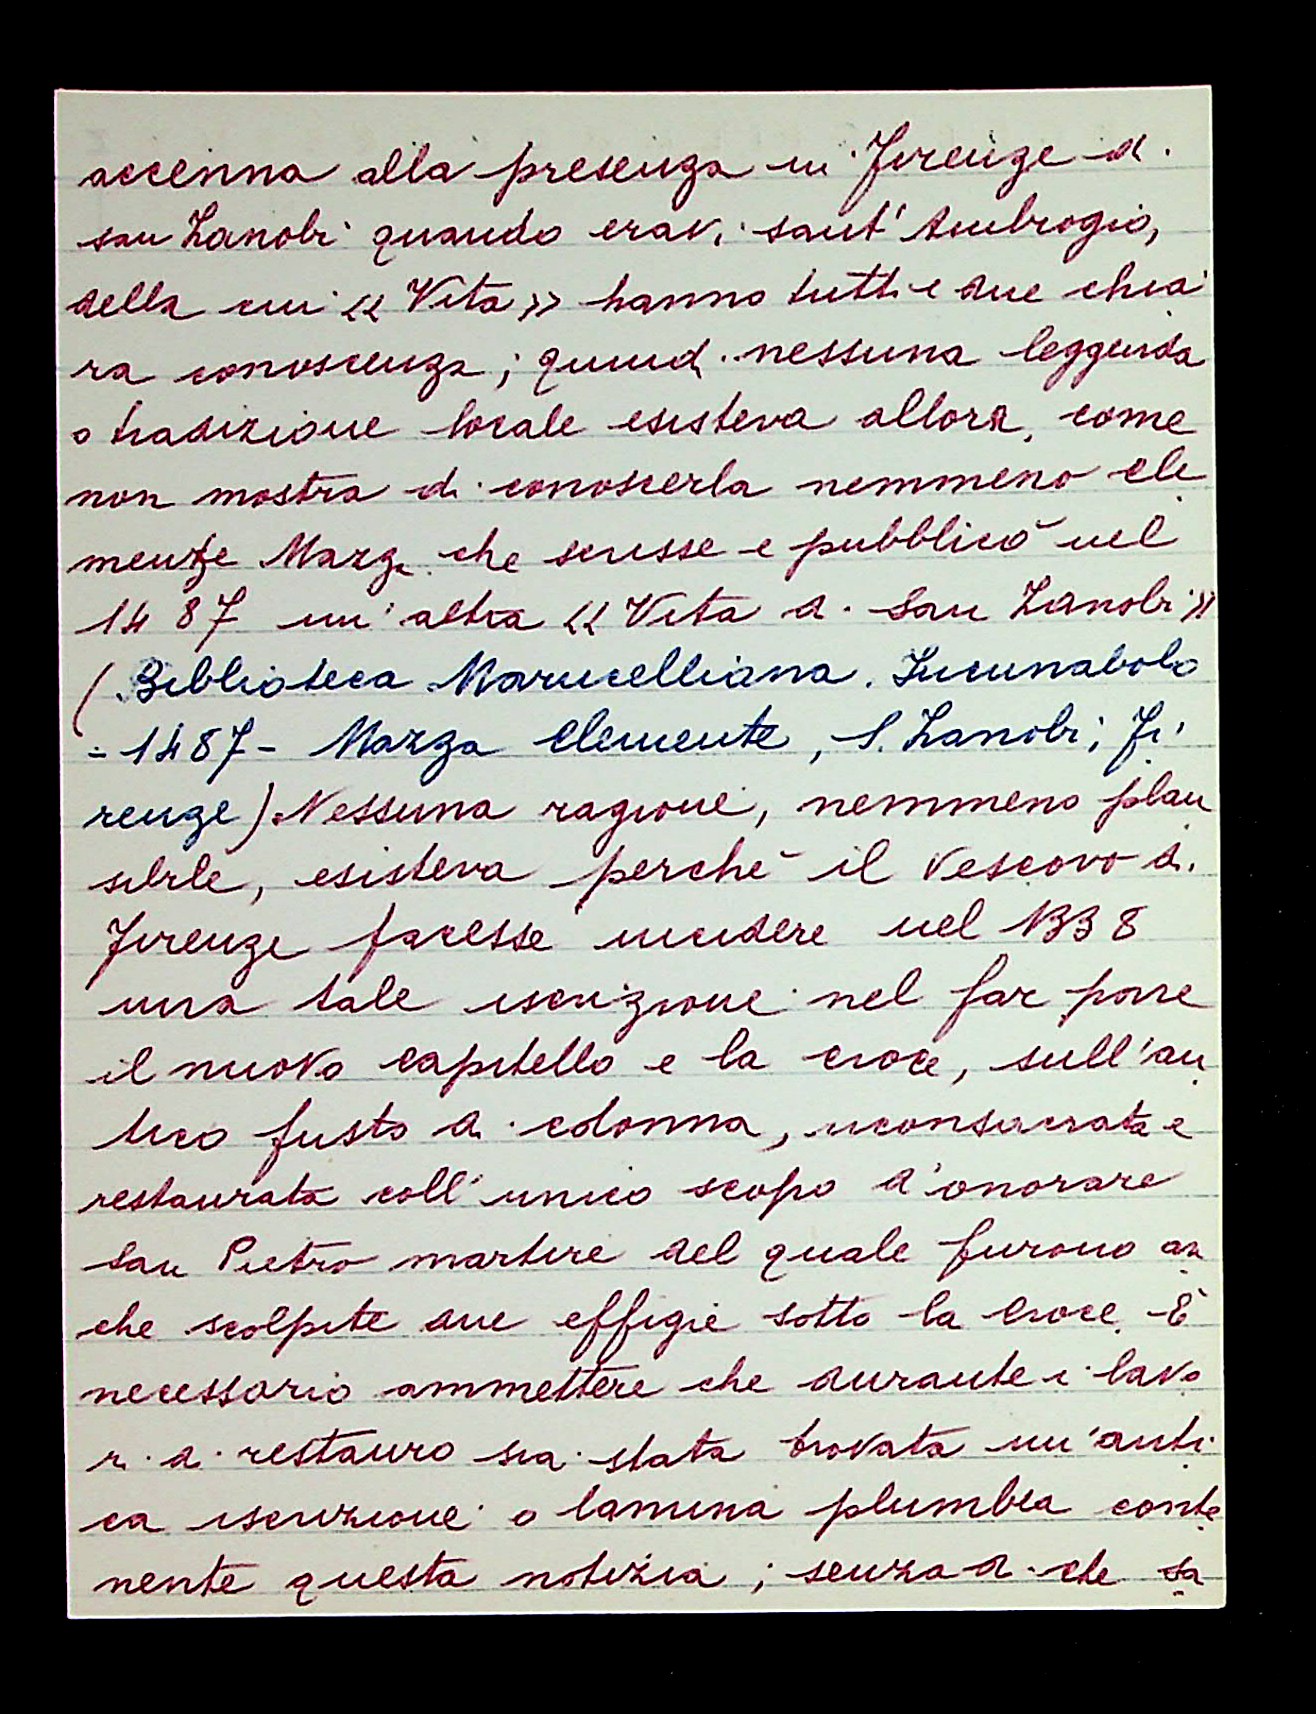 accenna alla presenza in Firenze di
san Zanobi quando eravi sant'Ambrogio,
della cui « Vita » hanno tutti e due chia
ra conoscenza; quindi nessuna leggenda
o tradizione locale esisteva allora, come
non mostra di conoscerla nemmeno Cle
mente Mazza che scrisse e pubblicò nel
1487 un'altra « Vita di San Zanobi »
(Biblioteca Marucelliana. Incunabolo
- 1487 - Mazza Clemente, S. Zanobi; Fi
renze). Nessuna ragione, nemmeno plau
sibile, esisteva perchè il Vescovo di
Firenze facesse incidere nel 1338
una tale iscrizione nel far porre
il nuovo capitello e la croce, sull'an
tico fusto di colonna, riconsacrata e
restaurata coll'unico scopo d'onorare
san Pietro martire del quale furono an
che scolpite due effigie sotto la Croce. È
necessario ammettere che durante i lavo
ri di restauro sia stata trovata un'anti
ca iscrizione o lamina plumbea conte
nente questa notizia; senza di che sa